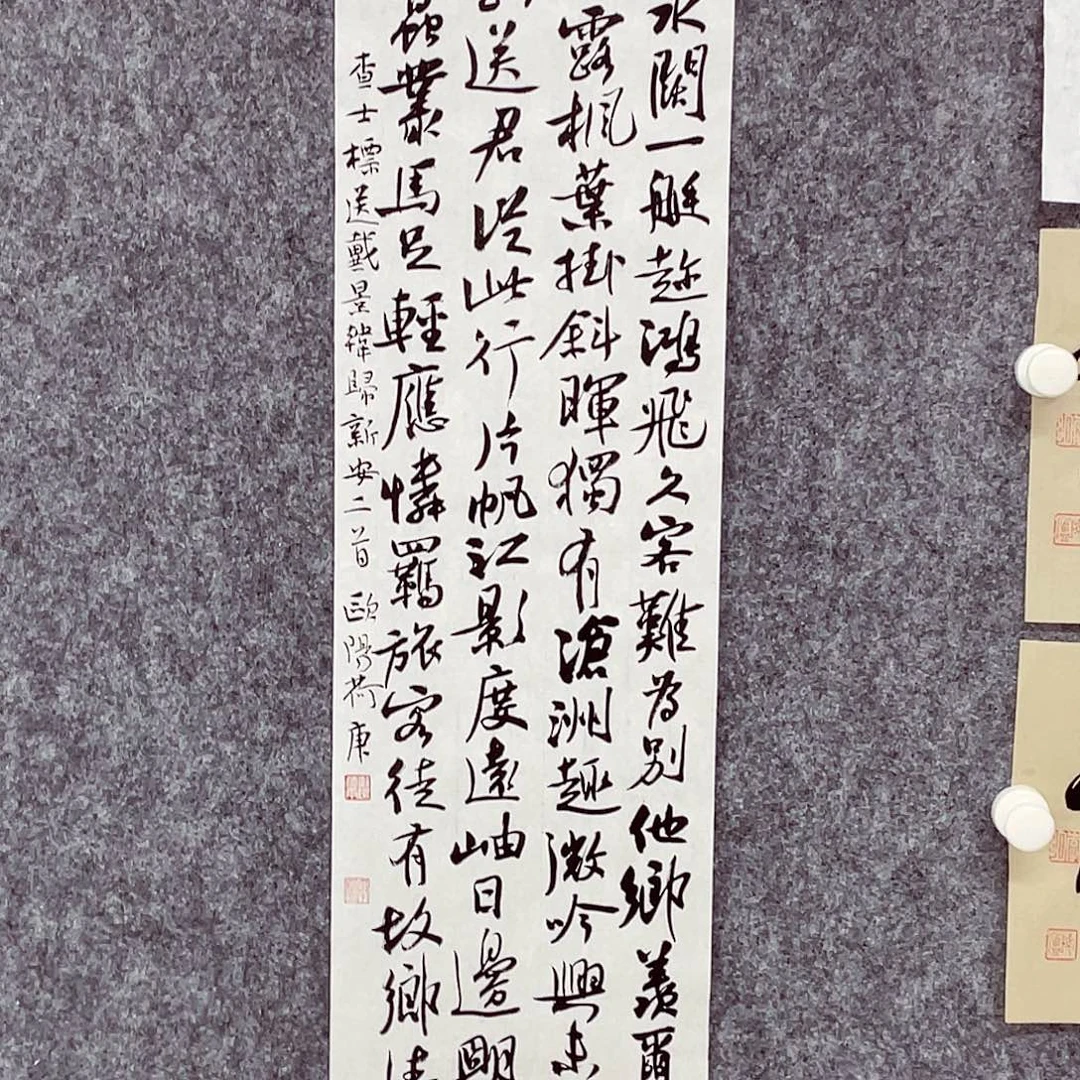 水闊一艇趁鴻飛久客難為別他鄉羨爾
露楓葉掛斜暉獨有滄洲趣微吟興未
送君從此行片帆江影度遠岫日邊明
蟲叢馬足輕應憐羈旅客徒有故鄉情
查士標送戴景韓歸新安二首 歐陽荷庚